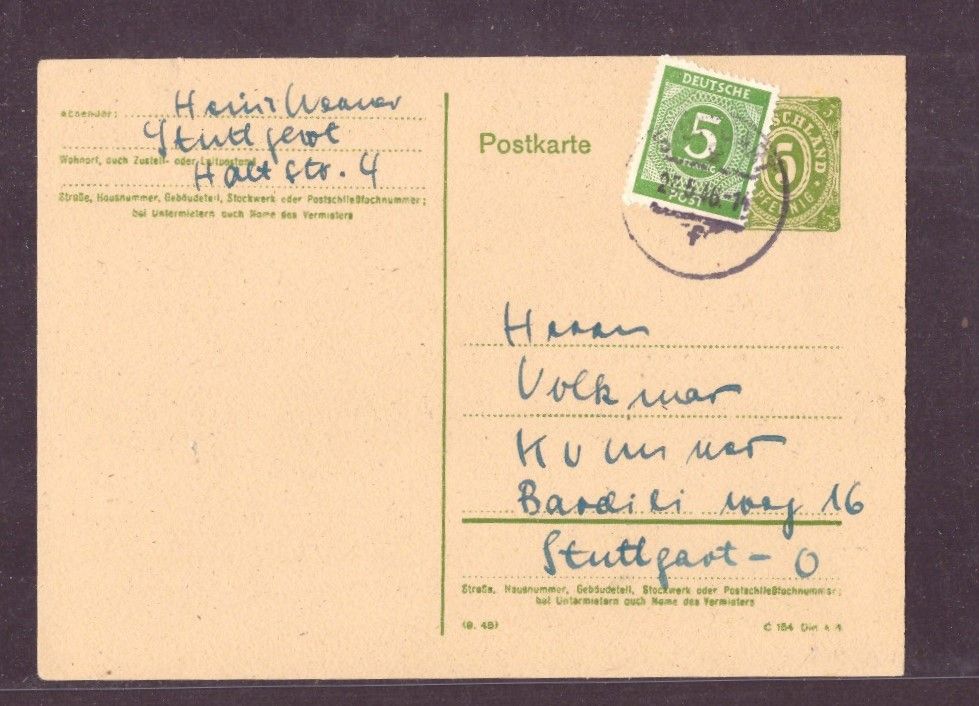 Absender: Heinz Werner
Stuttgart
Wohnort, auch Zustell- oder Leitpostamt
Str. 4
Straße, Hausnummer, Gebäudeteil, Stockwerk oder Postschließfachnummer;
bei Untermietern auch Name des Vermieters
Postkarte
DEUTSCHE
5
POST
DEUTSCHLAND
5
PFENNIG
Herrn
Volkmar
Kummer
Bardili weg 16
Stuttgart - O
Straße, Hausnummer, Gebäudeteil, Stockwerk oder Postschließfachnummer;
bei Untermietern auch Name des Vermieters
C 154 Din A 6